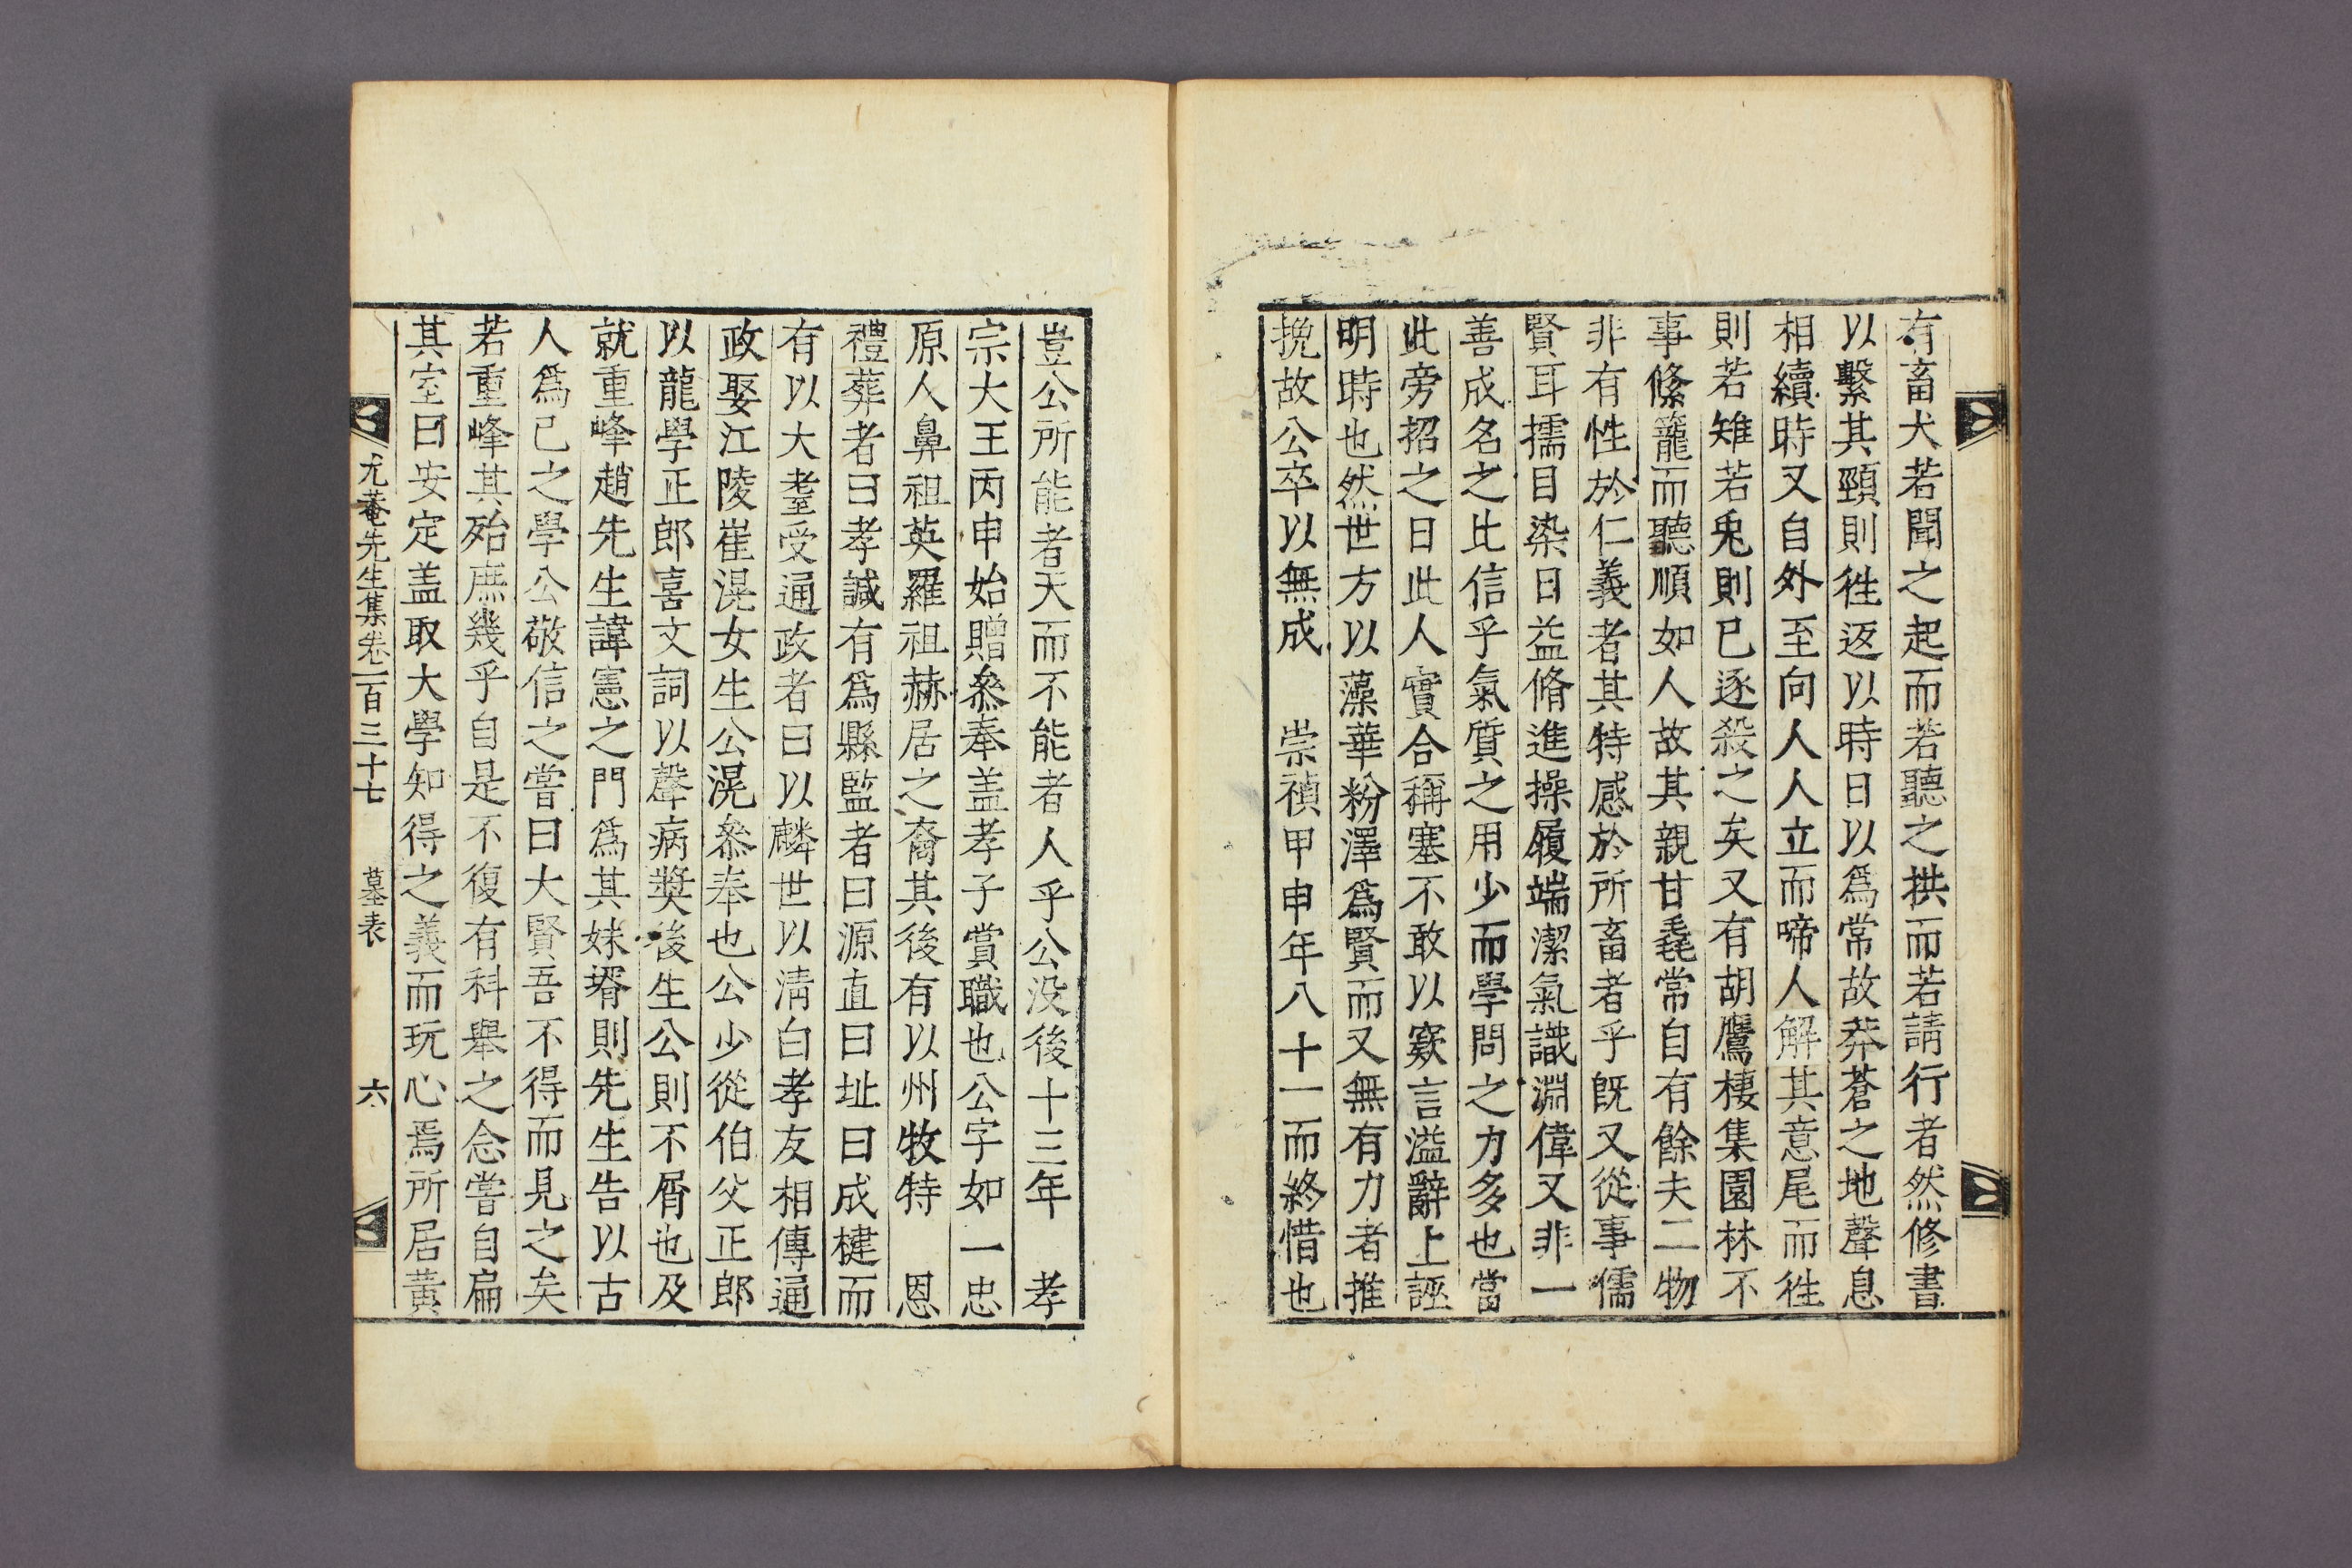 有畜犬若聞之起而若聽之拱而若請行者然修書
以繫其頸則徃返以時日以爲常故莽蒼之地聲息
相續時又自外至向人人立而啼人解其意尾而徃
則若雉若兎則已逐殺之矣又有胡鷹棲集園林不
事絛籠而聽順如人故其親甘毳常自有餘夫二物
非有性於仁義者其特感於所畜者乎旣又從事儒
賢耳擩目染日益脩進操履端潔氣識淵偉又非一
善成名之比信乎氣質之用少而學問之力多也當
此旁招之日此人實合稱塞不敢以窾言溢辭上誣
明時也然世方以藻華粉澤爲賢而又無有力者推
挽故公卒以無成 崇禎甲申年八十一而終惜也
豈公所能者天而不能者人乎公没後十三年 孝
宗大王丙申始贈叅奉盖孝子賞職也公字如一忠
原人鼻祖英羅祖赫居之裔其後有以州牧特 恩
禮葬者曰孝諴有爲縣監者曰源直曰址曰成楗而
有以大耋受通政者曰以麟世以淸白孝友相傳通
政娶江陵崔滉女生公滉叅奉也公少從伯父正郎
以龍學正郎喜文詞以聲病奬後生公則不屑也及
就重峰趙先生諱憲之門爲其妹壻則先生告以古
人爲己之學公敬信之嘗曰大賢吾不得而見之矣
若重峰其殆庶幾乎自是不復有科舉之念嘗自扁
其室曰安定盖取大學知得之義而玩心焉所居黃
尤菴先生集卷一百三十七 墓表 六